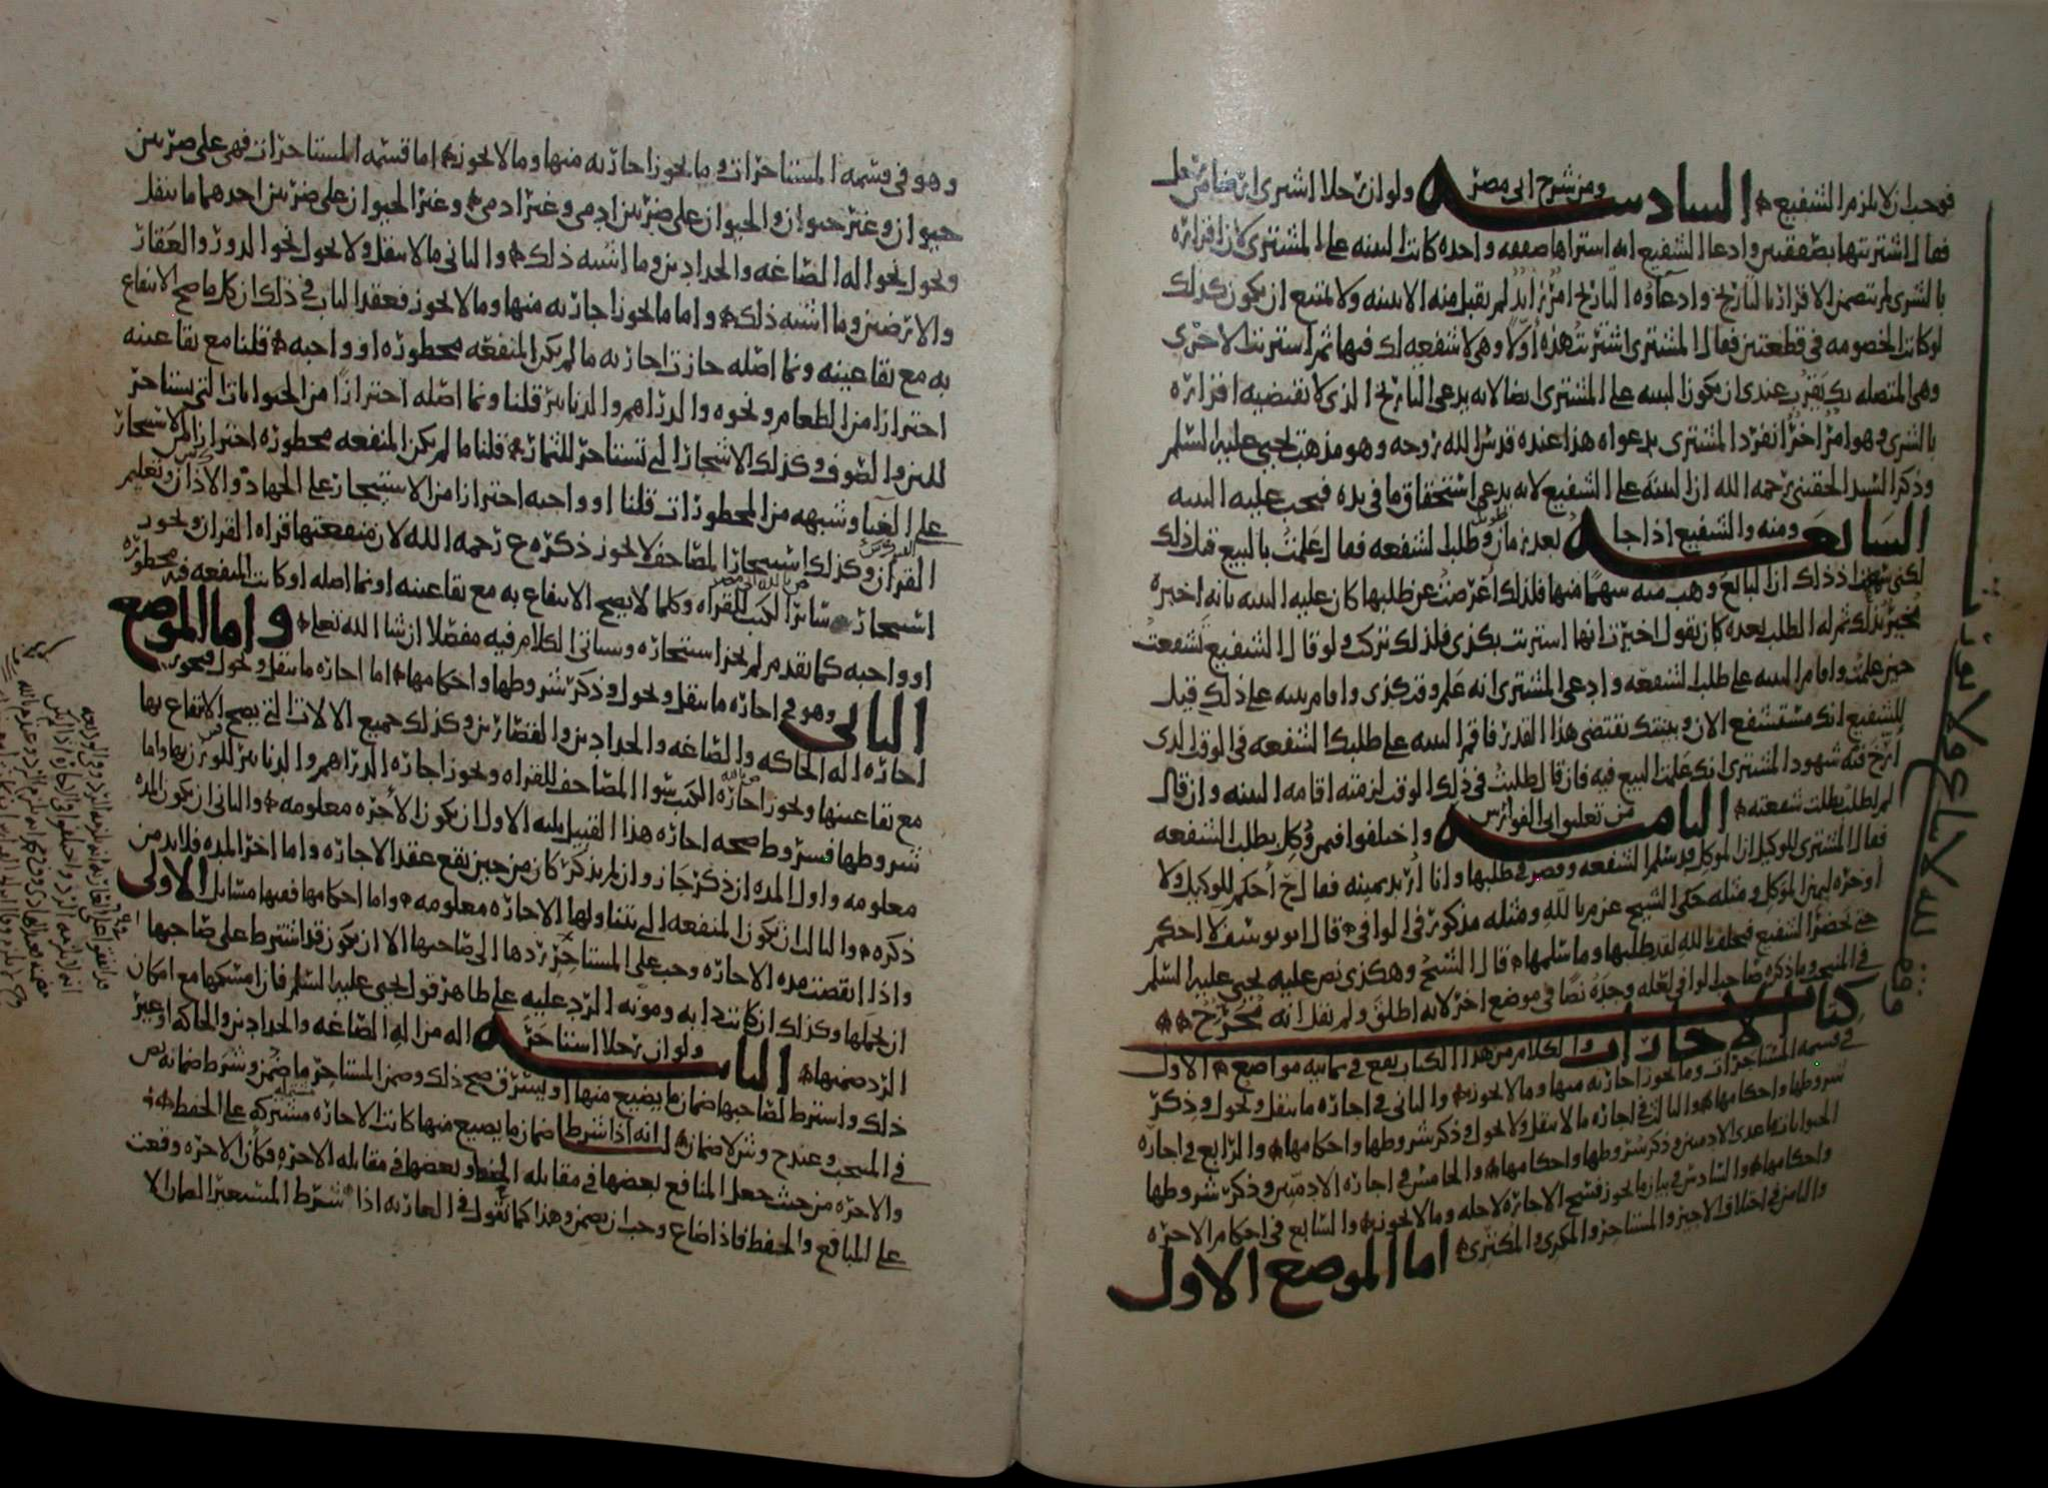 فوجب ان لا يلزم الشفيع السادسه ومن شرح ابى مضر ولو ان رجلا اشترى ارضا من رجل
فقال اشتريتها بصفقتين وادعا الشفيع انه اشتراها صفقه واحده كانت البينه على المشترى لان اقراره
بالشرى لم يتضمن الاقرار بالتاريخ وادعاؤه التاريخ امر زايد لم يقبل منه الا ببينه ولا يمتنع ان يكون كذلك
لو كانت الخصومه فى قطعتين فقال المشترى اشتريت هذه اولا وهى لا شفعه لك فيها ثم اشتريت الاخرى
وهى المتصله بك يقرب عندى ان يكون البينه على المشترى ايضا لانه يدعى التاريخ الذى لا يقتضيه اقراره
بالشرى وهو امر اخر انفرد المشترى بدعواه هذا عنده قدس الله روحه وهو مذهب يحيى عليه السلم
وذكر السيد الحقينى رحمه الله ان البينه على الشفيع لانه يدعى استحقاق ما فى يده فيجب عليه البينه
السابعه ومنه والشفيع اذا جا بعد زمان وطلب الشفعه فقال علمت بالبيع قبل ذلك
لكنى اذ ذاك ان البايع وهب منه سهما منها فلذلك اعرضت عن طلبها كان عليه البينه بانه اخبره
مخبر بذلك ثم له الطلب بعده كان يقول اخبرت انها اشتريت بكذى فلذلك تركت ولو قال الشفيع شفعت
حين علمت واقام البينه على طلب الشفعه وادعى المشترى انه علم وقت كذى واقام بينه على ذلك قيل
للشفيع انك مستشفع الان وبينتك تقتضى هذا القدر فاقم البينه على طلبك الشفعه فى الوقت الذى
ارخ فيه شهود المشترى انك علمت البيع فيه فان قال طلبت فى ذلك الوقت لزمته اقامه البينه وان قال
لم اطلب بطلت شفعته الثامنه من تعليق ابى الفوارس واختلفوا فيمن وكل بطلب الشفعه
فقال المشترى للوكيل ان الموكل قد سلم الشفعه وقصر فى طلبها وانا اريد يمينه فقال ح احكم للوكيل ولا
اوخره ليمين الموكل ومثله حكى الشيخ عن م بالله ومثله مذكور فى الوافى قال ابو يوسف لا احكم
حتى يحضر الشفيع فيحلف بالله لقد طلبها وما سلمها قال الشيخ وهكذى نص عليه يحيى عليه السلم
فى المنتخب وما ذكره صاحب الوافى لعله وجده نصا فى موضع اخر لانه اطلق ولم يقل انه مخرج
كتاب الاجارات والكلام من هذا الكتاب يقع فى ثمانيه مواضع الاول
فى قسمه المستاجرات وما يجوز اجارته منها وما لا يجوز والثانى فى اجاره ما ينقل ويحول وذكر
شروطها واحكامها والثالث فى اجاره ما لا ينقل ولا يحول وذكر شروطها واحكامها والرابع فى اجاره
الحيوانات ما عدى الادميين وذكر شروطها واحكامها والخامس فى اجاره الادميين وذكر شروطها
واحكامها والسادس فى بيان ما يجوز فسخ الاجاره لاجله وما لا يجوز والسابع فى احكام الاجره
والثامن فى اختلاف الاجير والمستاجر والمكرى والمكترى اما الموضع الاول
وقف لله لا يباع ولا يورث
وهو فى قسمه المستاجرات وما يجوز اجارته منها وما لا يجوز اما قسمه المستاجرات فهى على ضربين
حيوان وغير حيوان والحيوان على ضربين ادمى وغير ادمى وغير الحيوان على ضربين احدهما ما ينقل
ويحول نحو اله الصاغه والحدادين وما اشبه ذلك والثانى ما لا ينقل ولا يحول نحو الدور والعقار
والارضين وما اشبه ذلك واما ما يجوز اجارته منها وما لا يجوز فعقد الباب فى ذلك ان كل ما صح الانتفاع
به مع بقا عينه ونما اصله جازت اجارته ما لم يكن المنفعه محظوره او واجبه قلنا مع بقا عينه
احترازا من الطعام ونحوه والدراهم والدنانير قلنا ونما اصله احترازا من الحيوانات التى يستاجر
للبن والصوف وكذلك الاشجار التى تستاجر للثمار قلنا ما لم يكن المنفعه محظوره احترازا من الاستيجار
على الغنا وشبهه من المحظورات قلنا او واجبه احترازا من الاستيجار على الجهاد والاذان وتعليم
القران وكذلك استيجار المصاحف لا يجوز ذكره ع رحمه الله لان منفعتها قراه القران ويجوز
استيجار ساير الكتب للقراه وكلما لا يصح الانتفاع به مع بقا عينه او نما اصله او كانت المنفعه فيه محظوره
او واجبه كما تقدم لم يجز استيجاره وسياتى الكلام فيه مفصلا ان شا الله تعلى واما الموضع
الثانى وهو فى اجاره ما ينقل ويحول وذكر شروطها واحكامها اما اجاره ما ينقل ويحول فيجوز
اجاره اله الحاكه والصاغه والحدادين والقصارين وكذلك جميع الالات التى يصح الانتفاع بها
مع بقا عينها ويجوز اجاره الكتب سوا المصاحف للقراه ويجوز اجاره الدراهم والدنانير للوزن بها واما
شروطها فشروط صحه اجاره هذا القبيل ثلثه الاول ان يكون الاجره معلومه والثانى ان يكون المده
معلومه واول المده ان ذكر جاز وان لم يذكر كان من حين يقع عقد الاجاره واما اخر المده فلا بد من
ذكره والثالث ان يكون المنفعه التى يتناولها الاجاره معلومه واما احكامها ففيها مسايل الاولى
واذا انقضت مده الاجاره وجب على المستاجر ردها الى صاحبها الا ان يكون قد اشترط على صاحبها
ان يحملها وكذلك ان كانت دابه ومونه الرد عليه على ظاهر قول يحيى عليه السلم فان امسكها مع امكان
الرد ضمنها الثانيه ولو ان رجلا استاجر اله من اله الصاغه والحدادين والحاكه او غير
ذلك واشترط لصاحبها ضمان ما يضيع منها او يسترق صح ذلك وضمن المستاجر ما ضمن وشرط ضمانه نص
فى المنتخب وعند ح وش لا ضمان لنا انه اذا شرط ضمان ما يضيع منها كانت الاجاره مشتركه على الحفظ
والاجره من حيث جعل المنافع بعضها فى مقابله الحفظ وبعضها فى مقابله الاجره فكان الاجره وقعت
على المنافع والحفظ فاذا ضاع وجب ان يضمن وهذا كما نقول فى العاريه اذا شرط المستعير الضمان لا